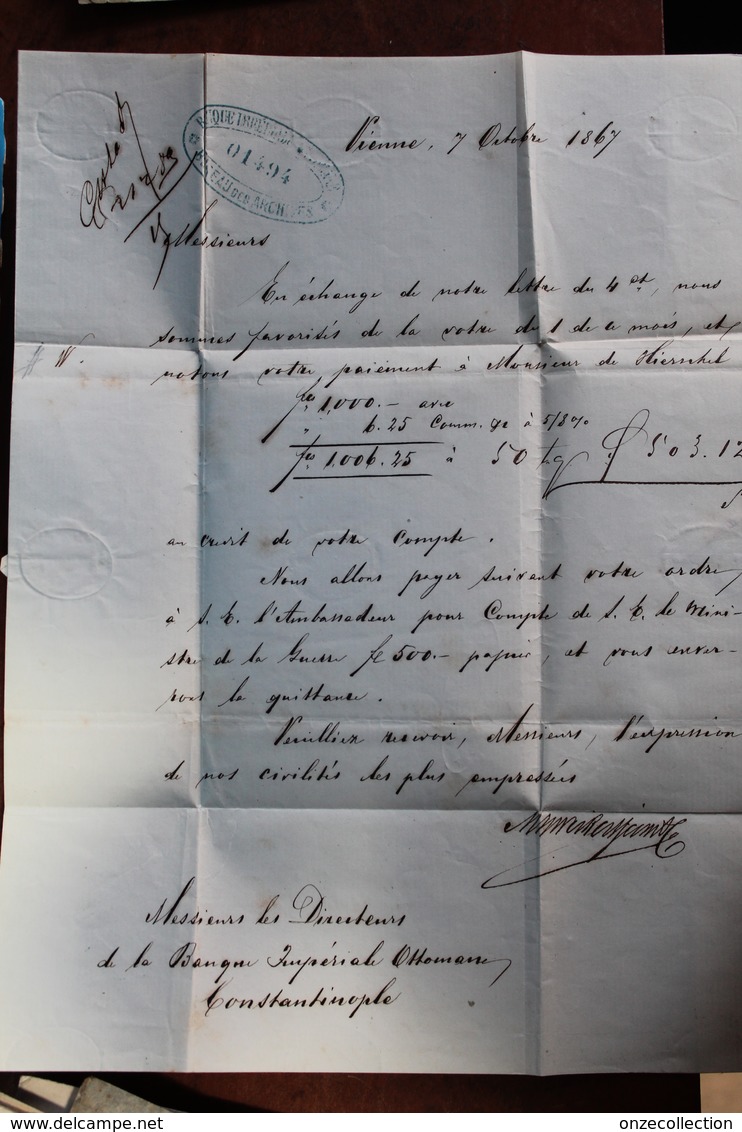 BQUE IMPÉRIALE OTTOMANE
01494
BUREAU DES ARCHIVES
Vienne, 7 Octobre 1867
Messieurs
En échange de notre lettre du 4 ct, nous
sommes favorisés de la votre du 1 de ce mois, et
W.
notons votre paiement à Monsieur de Hierschel
fcs 1,000.— avec
" 6.25 Comm. à 5/8 %
fcs 1,006.25 à 50 f 503.12
au credit de votre Compte.
Nous allons payer suivant votre ordre,
à S. E. l'Ambassadeur pour Compte de S. E. le Mini-
stre de la Guerre f 500.— papier, et vous enver-
rons la quittance.
Veuilliez recevoir, Messieurs, l'expression
de nos civilités les plus empressées
Messieurs les Directeurs
de la Banque Impériale Ottomane,
Constantinople
onzecollection